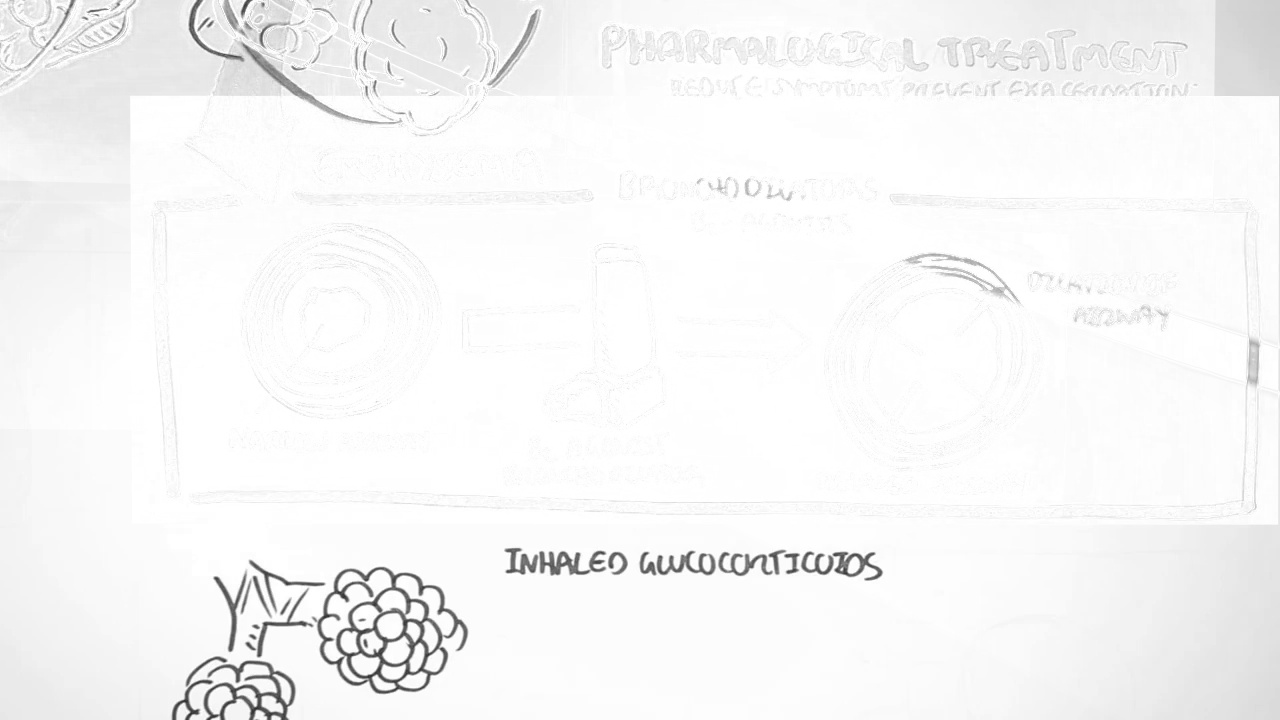 PHARMALOGICAL TREATMENT
REDUCE SYMPTOMS PREVENT EXACERBATION
BRONCHODILATORS
B₂ AGONISTS
DILATION OF
AIRWAY
B₂ AGONIST
BRONCHODILATOR
INHALED GLUCOCORTICOIDS